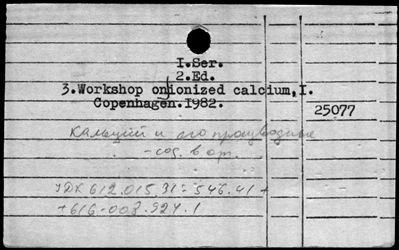 1.Ser.
2.Ed.
3.Workshop on ionized calcium,I.
Copenhagen.1982.
25077
Кальций и его производные
- сод. в орг.
УДК 612.015.31:546.41 +
+616-008.924.1